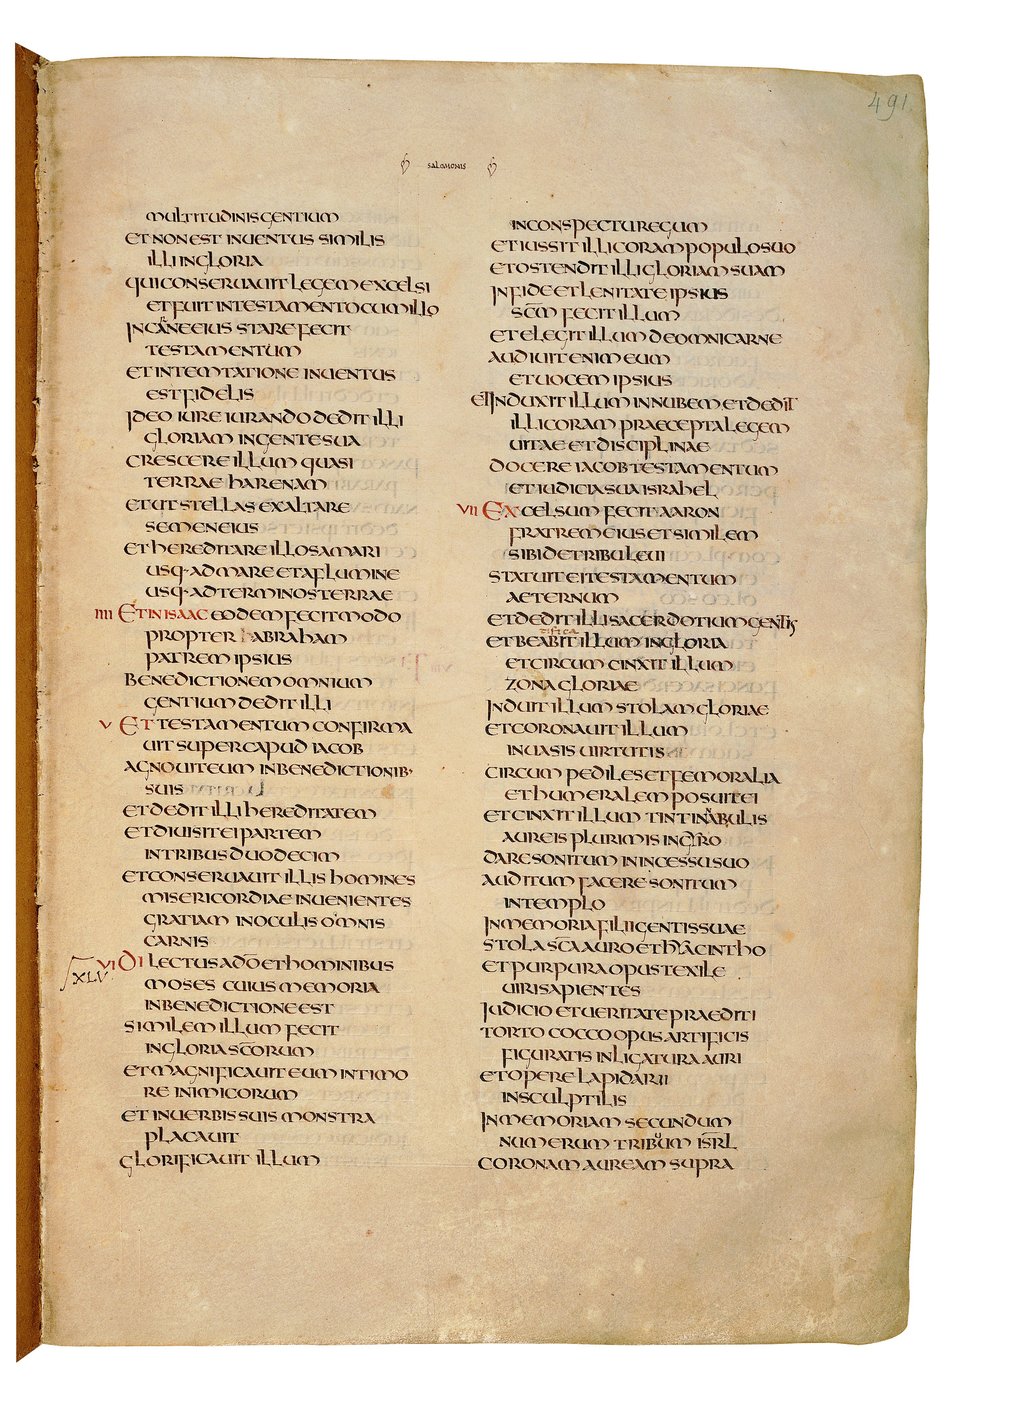 491
SALOMONIS
MULTITUDINIS GENTIUM
ET NON EST INUENTUS SIMILIS
ILLI IN GLORIA
QUI CONSERUAUIT LEGEM EXCELSI
ET FUIT IN TESTAMENTO CUM ILLO
IN CARNE EIUS STARE FECIT
TESTAMENTUM
ET IN TEMTATIONE INUENTUS
EST FIDELIS
IDEO IURE IURANDO DEDIT ILLI
GLORIAM IN GENTE SUA
CRESCERE ILLUM QUASI
TERRAE HARENAM
ET UT STELLAS EXALTARE
SEMEN EIUS
ET HEREDITARE ILLOS A MARI
USQ· AD MARE ET A FLUMINE
USQ· AD TERMINOS TERRAE
IIII ET IN ISAAC EODEM FECIT MODO
PROPTER ABRAHAM
PATREM IPSIUS
BENEDICTIONEM OMNIUM
GENTIUM DEDIT ILLI
V ET TESTAMENTUM CONFIRMA
UIT SUPER CAPUD IACOB
AGNOUIT EUM IN BENEDICTIONIB·
SUIS
ET DEDIT ILLI HEREDITATEM
ET DIUISIT EI PARTEM
IN TRIBUS DUODECIM
ET CONSERUAUIT ILLIS HOMINES
MISERICORDIAE INUENIENTES
GRATIAM IN OCULIS OMNIS
CARNIS
XLV VI DILECTUS A DŌ ET HOMINIBUS
MOSES CUIUS MEMORIA
IN BENEDICTIONE EST
SIMILEM ILLUM FECIT
IN GLORIA SC̄ORUM
ET MAGNIFICAUIT EUM IN TIMO
RE INIMICORUM
ET IN UERBIS SUIS MONSTRA
PLACAUIT
GLORIFICAUIT ILLUM
IN CONSPECTU REGUM
ET IUSSIT ILLI CORAM POPULO SUO
ET OSTENDIT ILLI GLORIAM SUAM
IN FIDE ET LENITATE IPSIUS
SC̄M FECIT ILLUM
ET ELEGIT ILLUM DE OMNI CARNE
AUDIUIT ENIM EUM
ET UOCEM IPSIUS
ET INDUXIT ILLUM IN NUBEM ET DEDIT
ILLI CORAM PRAECEPTA LEGEM
UITAE ET DISCIPLINAE
DOCERE IACOB TESTAMENTUM
ET IUDICIA SUA ISRAHEL
VII EXCELSUM FECIT AARON
FRATREM EIUS ET SIMILEM
SIBI DE TRIBU LEUI
STATUIT EI TESTAMENTUM
AETERNUM
ET DEDIT ILLI SACERDOTIUM GENTIS
ET BEABIT ILLUM IN GLORIA
ET CIRCUMCINXIT ILLUM
ZONA GLORIAE
INDUIT ILLUM STOLAM GLORIAE
ET CORONAUIT ILLUM
IN UASIS UIRTUTIS
CIRCUM PEDILES ET FEMORALIA
ET HUMERALEM POSUIT EI
ET CINXIT ILLUM TINTINABULIS
AUREIS PLURIMIS IN GYRO
DARE SONITUM IN INCESSU SUO
AUDITUM FACERE SONITUM
IN TEMPLO
IN MEMORIA FILII GENTIS SUAE
STOLA SC̄A AURO ET HYACINTHO
ET PURPURA OPUS TEXILE
UIRI SAPIENTES
IUDICIO ET UERITATE PRAEDITI
TORTO COCCO OPUS ARTIFICIS
FIGURATIS IN LIGATURA AURI
ET OPERE LAPIDARII
INSCULPTILIS
IN MEMORIAM SECUNDUM
NUMERUM TRIBUUM ISR̄L
CORONAM AUREAM SUPRA